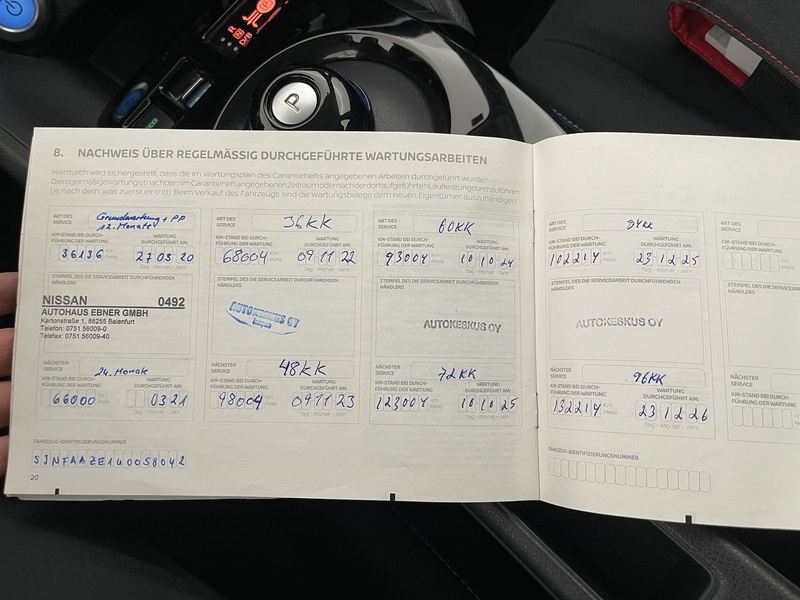 8. NACHWEIS ÜBER REGELMÄSSIG DURCHGEFÜHRTE WARTUNGSARBEITEN
Hierdurch wird sichergestellt, dass die im Wartungsplan des Garantiehefts angegebenen Arbeiten durchgeführt wurden.
Die regelmäßige Wartung ist nach dem im Garantieheft angegebenen Zeitraum oder nach der dort aufgeführten Laufleistung durchzuführen
(je nach dem, was zuerst eintritt). Beim Verkauf des Fahrzeugs sind die Wartungsbelege dem neuen Eigentümer auszuhändigen.
ART DES SERVICE
Grundwartung + PP
12. Monate
KM-STAND BEI DURCH-
FÜHRUNG DER WARTUNG
WARTUNG
DURCHGEFÜHRT AM:
36136 27 03 20
Tag - Monat - Jahr
STEMPEL DES DIE SERVICEARBEIT DURCHFÜHRENDEN
HÄNDLERS
NISSAN 0492
AUTOHAUS EBNER GMBH
Kartonstraße 1, 88255 Baienfurt
Telefon: 0751 56009-0
Telefax: 0751 56009-40
NÄCHSTER
SERVICE
24. Monate
KM-STAND BEI DURCH-
FÜHRUNG DER WARTUNG
WARTUNG
DURCHGEFÜHRT AM:
66000 km Meile 03 21
Tag - Monat - Jahr
ART DES
SERVICE
36KK
KM-STAND BEI DURCH-
FÜHRUNG DER WARTUNG
WARTUNG
DURCHGEFÜHRT AM:
68004 km Meile 09 11 22
Tag - Monat - Jahr
STEMPEL DES DIE SERVICEARBEIT DURCHFÜHRENDEN
HÄNDLERS
AUTOKESKUS OY
NÄCHSTER
SERVICE
48KK
KM-STAND BEI DURCH-
FÜHRUNG DER WARTUNG
WARTUNG
DURCHGEFÜHRT AM:
98004 km Meile 09 11 23
Tag - Monat - Jahr
ART DES
SERVICE
60KK
KM-STAND BEI DURCH-
FÜHRUNG DER WARTUNG
WARTUNG
DURCHGEFÜHRT AM:
93004 km Meile 10 10 24
Tag - Monat - Jahr
STEMPEL DES DIE SERVICEARBEIT DURCHFÜHRENDEN
HÄNDLERS
AUTOKESKUS OY
NÄCHSTER
SERVICE
72KK
KM-STAND BEI DURCH-
FÜHRUNG DER WARTUNG
WARTUNG
DURCHGEFÜHRT AM:
123004 km Meile 10 10 25
Tag - Monat - Jahr
ART DES
SERVICE
KM-STAND BEI DURCH-
FÜHRUNG DER WARTUNG
WARTUNG
DURCHGEFÜHRT AM:
102214 km Meile 23 12 25
Tag - Monat - Jahr
STEMPEL DES DIE SERVICEARBEIT DURCHFÜHRENDEN
HÄNDLERS
AUTOKESKUS OY
NÄCHSTER
SERVICE
96KK
KM-STAND BEI DURCH-
FÜHRUNG DER WARTUNG
WARTUNG
DURCHGEFÜHRT AM:
132214 km Meile 23 12 26
Tag - Monat - Jahr
ART DES
SERVICE
KM-STAND BEI DURCH-
FÜHRUNG DER WARTUNG
STEMPEL DES DIE SERVICE
HÄNDLERS
NÄCHSTER
SERVICE
KM-STAND BEI DURCH-
FÜHRUNG DER WARTUNG
FAHRZEUG-IDENTIFIZIERUNGSNUMMER
SJNFAAZE1U0058042
20
FAHRZEUG-IDENTIFIZIERUNGSNUMMER
P
R
N
D/B